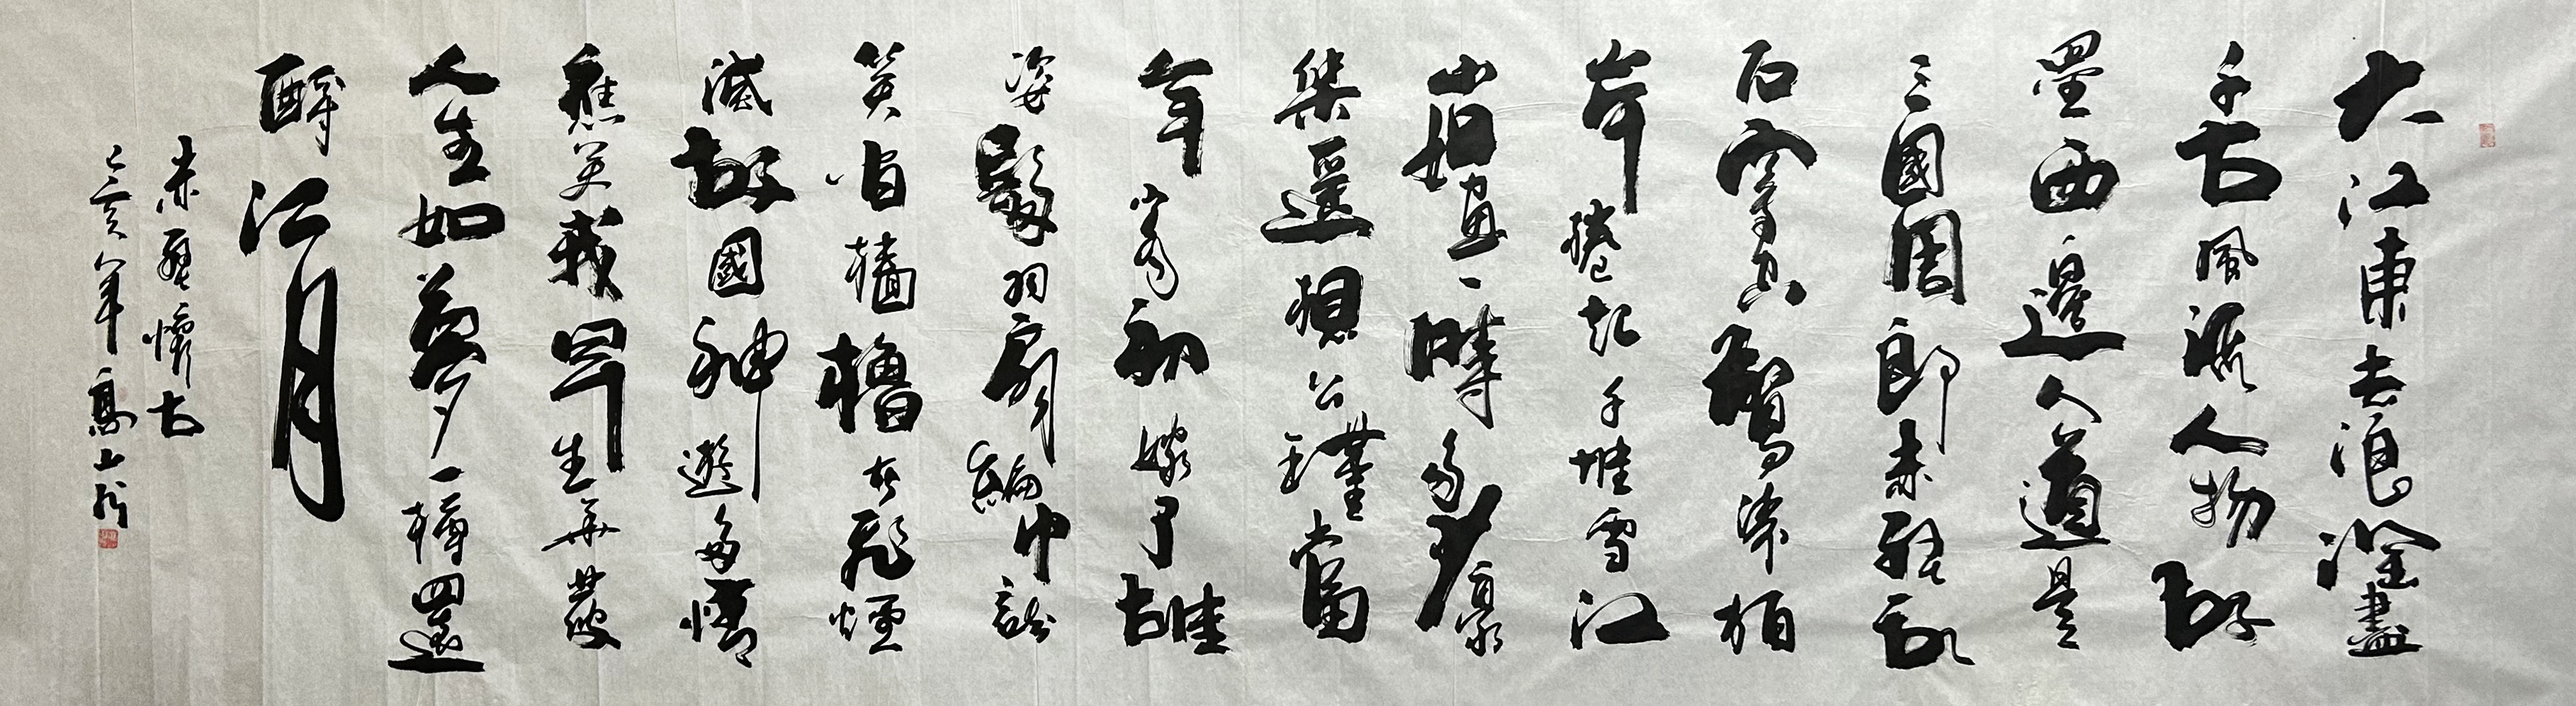 大江東去浪淘盡
千古風流人物故
壘西邊人道是
三國周郎赤壁亂
石穿空驚濤拍
岸捲起千堆雪江
山如畫一時多少豪
傑遙想公瑾當
年小喬初嫁了雄
姿發羽扇綸巾談
笑間檣櫓灰飛煙
滅故國神遊多情
應笑我早生華髮
人生如夢一樽還
酹江月
赤壁懷古
己亥年高山